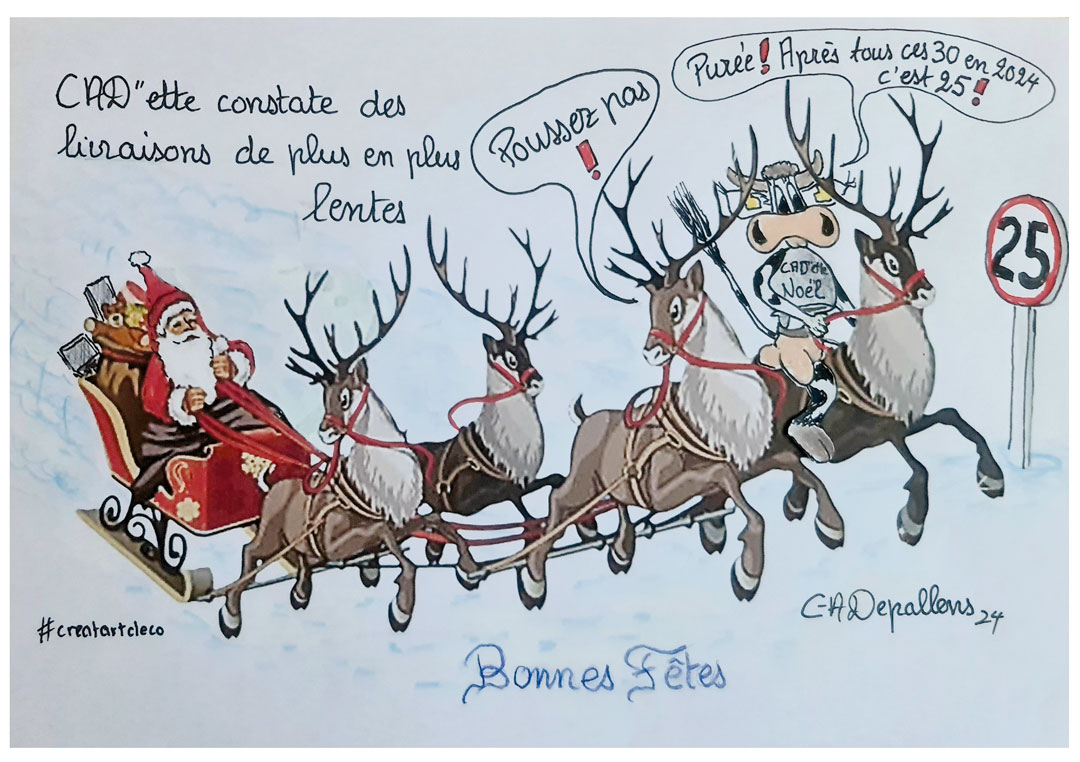 CAD"ette constate des
livraisons de plus en plus
lentes
Poussez pas
!
Purée! Après tous ces 30 en 2024
c'est 25!
CAD'ette
Noël
25
#creatartcleco
C-ADepallens 24
Bonnes Fêtes